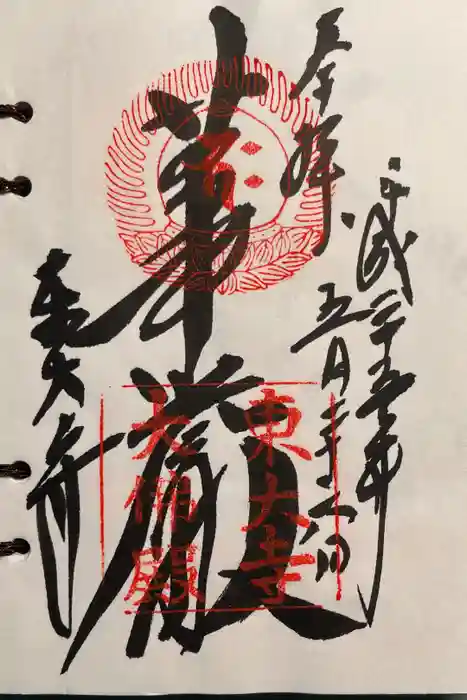 奉拝
平成二十五年
五月二十六日
華厳
東大寺
東大寺
大佛殿